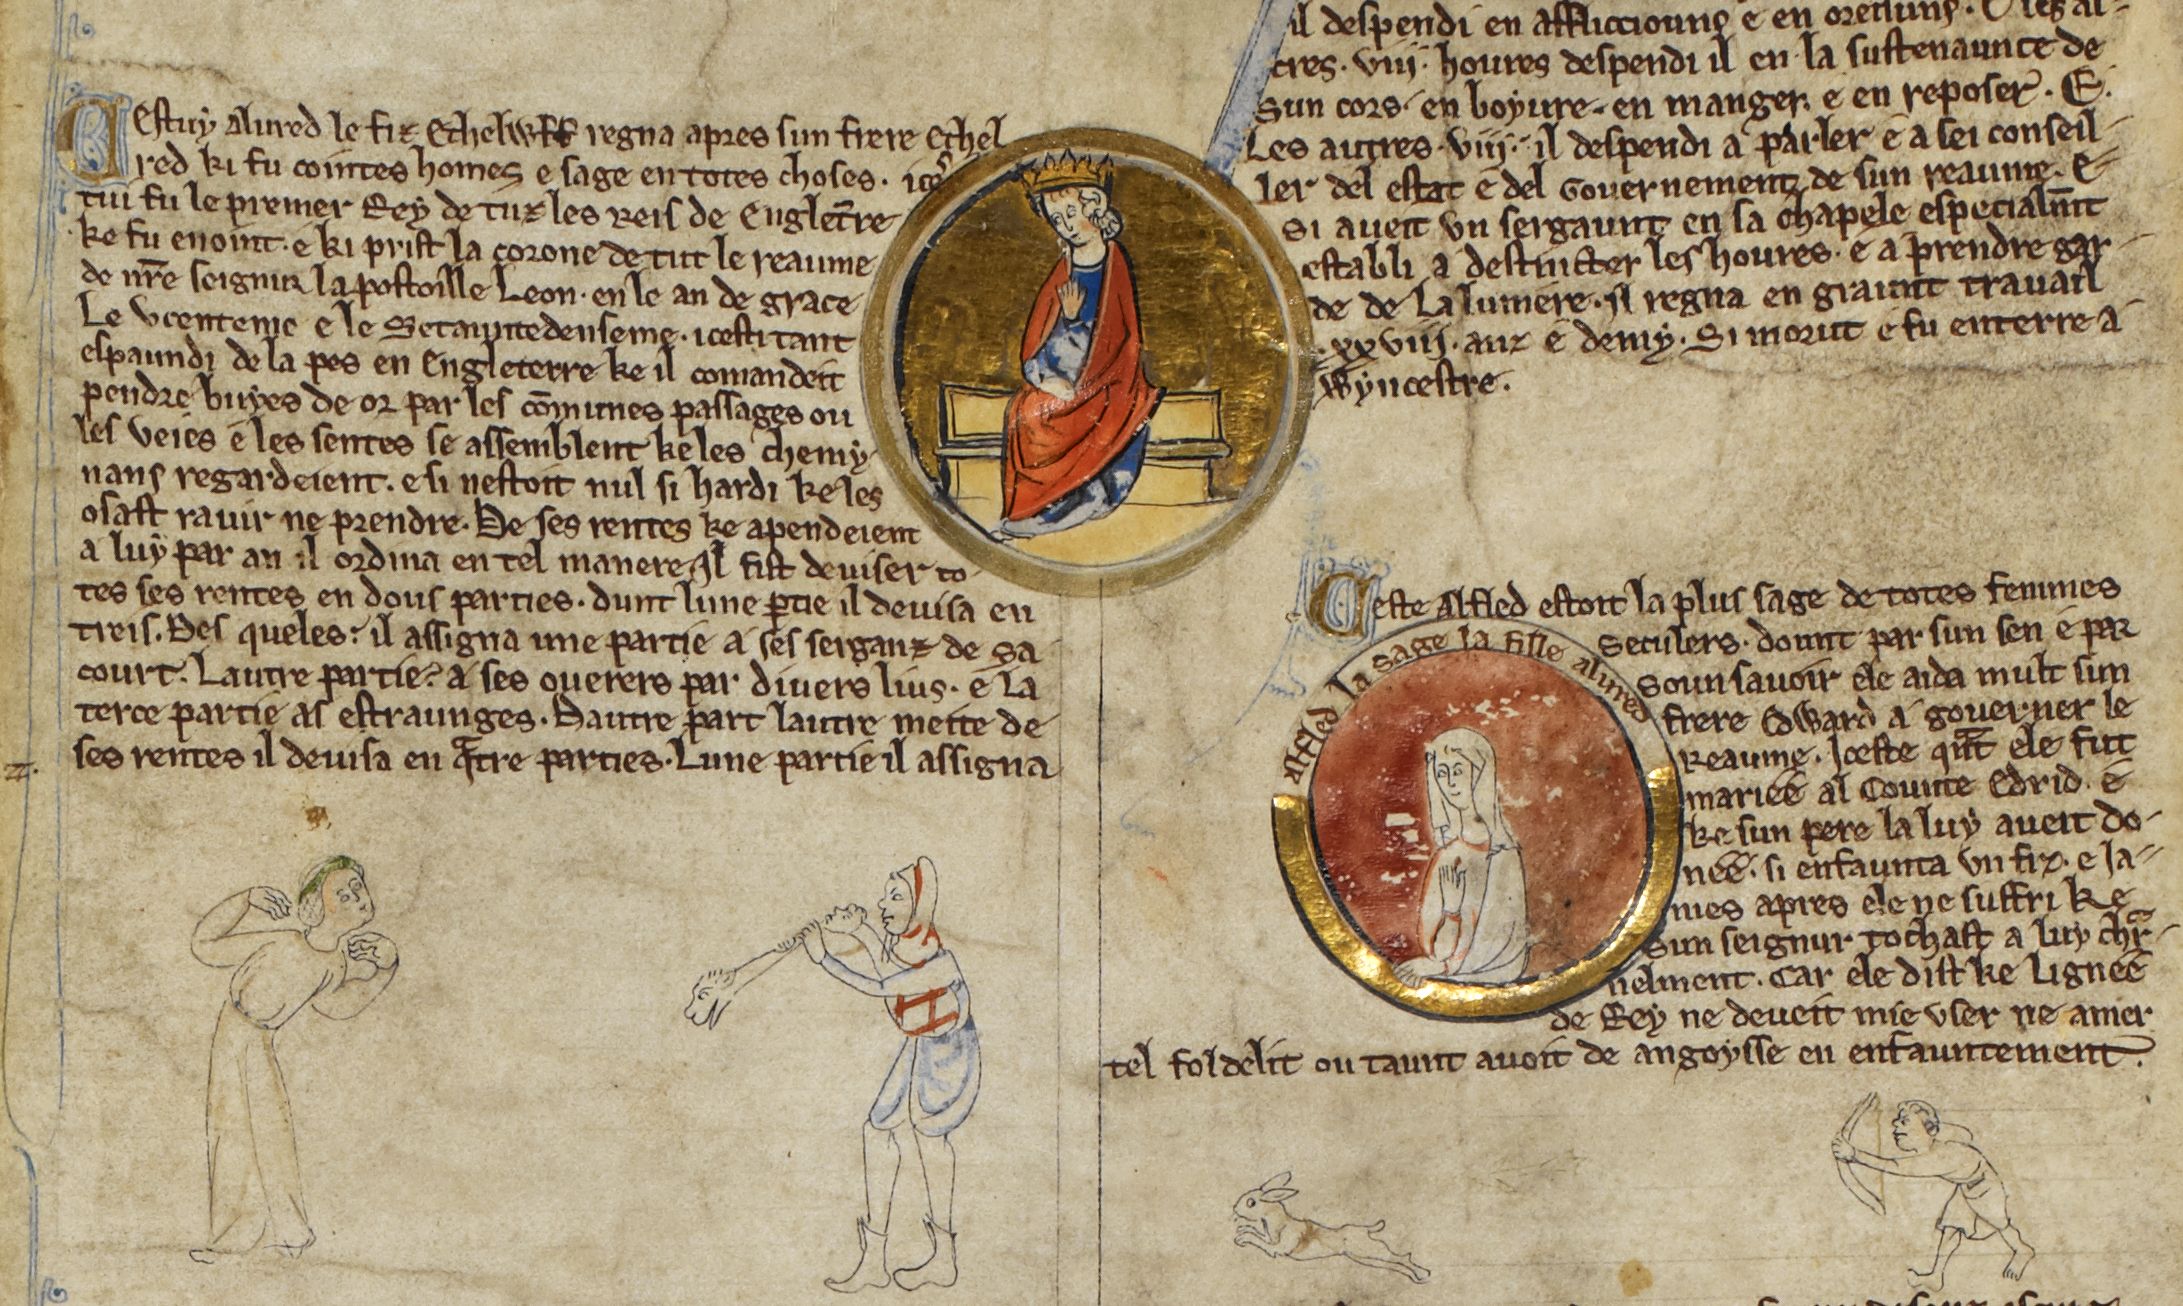 Cestuy Alured le fiz Ethelwlf regna apres sun frere Ethel
red ki fu cointes homes e sage en totes choses. ices
tui fu le premer Rey de tuz les reis de Engletre
ke fu enoint. e ki prist la corone de tut le reaume
de nre seignur la postoille Leon. en le an de grace
Le vcenteme e le Setauntedeuseme. icesti tant
espaundi de la pes en Engleterre ke il comandeit
pendre buyes de or par les comunes passages ou
les veies e les sentes se assemblent ke les chemy
nans regardeient. e si nestoit nul si hardi ke les
osast rauir ne prendre. De ses rentes ke apendeient
a luy par an il ordina en tel manere. Il fist deuiser to-
tes ses rentes en dous parties. dunt lune ptie il deuisa en
treis. Des queles: il assigna une partie a ses serganz de sa
court. Lautre partie: a ses ouerers par diuers lius. e la
terce partie as estraunges. Dautre part lautre meite de
ses rentes il deuisa en qatre parties. Lune partie il assigna
il despendi en afflicciouns e en oreisuns. E les au-
tres. viij. houres despendi il en la sustenaunce de
sun cors. en boyure. en manger. e en reposer. E.
Les autres. viij. il despendi a parler e a sei conseil-
ler del estat e del gouernement de sun reaume. E
Si aueit vn sergaunt en sa chapele especialmt
establi a destincter les houres. e a prendre gar-
de de La lumiere. Il regna en graunt trauail
.xxviij. anz e demy. Si morut e fu enterre a
Wyncestre.
Ceste Alfled estoit la plus sage de totes femmes
seculers. dount par sun sen e par
soun sauoir ele aida mult sun
frere Edward a gouerner le
reaume. Iceste qnt ele fut
mariee al Counte Edrid. e
ke sun pere la luy aueit do-
nee. si enfaunta vn fiz. e ja-
mes apres ele ne suffri ke
sun seignur tochast a luy char-
nelment. Car ele dist ke lignee
de Rey ne deueit mie vser ne amer
tel fol delit ou taunt auoit de angoysse en enfauntement.
Alfled la sage la fille Alured